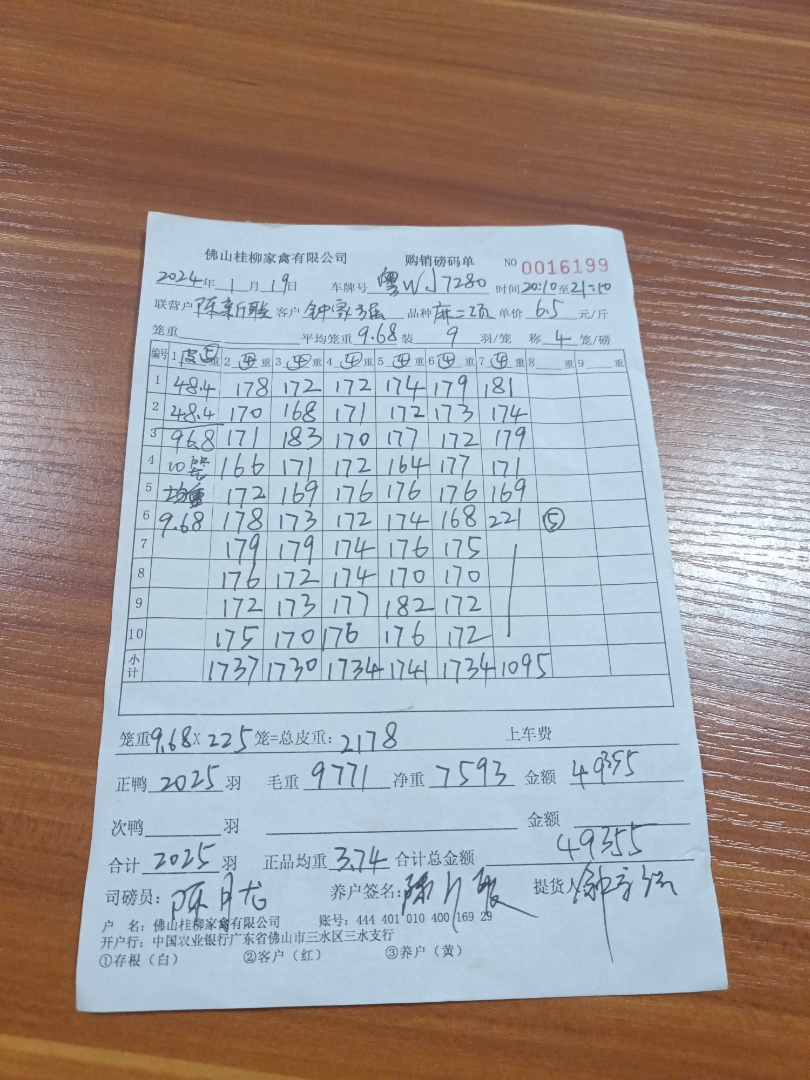 佛山桂柳家禽有限公司 购销磅码单 NO 0016199
2024年 1月 19日 车牌号 粤WJ7280 时间 20:10至21:50
联营户 陈新联 客户 品种 麻二项 单价 6.5 元/斤
笼重 平均笼重 9.68 装 9 羽/笼 称 4 笼/磅
编号 1 皮⑤重 2 ④重 3 ④重 4 ④重 5 ④重 6 ④重 7 ④重 8 重 9 重
1 48.4 178 172 172 174 179 181
2 48.4 170 168 171 172 173 174
3 96.8 171 183 170 177 172 179
4 10装 166 171 172 164 177 171
5 均重 172 169 176 176 176 169
6 9.68 178 173 172 174 168 221 ⑤
7 179 179 174 176 175
8 176 172 174 170 170
9 172 173 177 182 172
10 175 170 176 176 172
小计 1737 1730 1734 1741 1734 1095
笼重9.68X225笼=总皮重:2178 上车费
正鸭 2025 羽 毛重 9771 净重 7593 金额 49355
次鸭 羽 金额
合计 2025 羽 正品均重 3.74 合计总金额 49355
司磅员: 养户签名: 提货人
户 名:佛山桂柳家禽有限公司 账号:444 401 010 400 169 29
开户行:中国农业银行广东省佛山市三水区三水支行
①存根(白) ②客户(红) ③养户(黄)